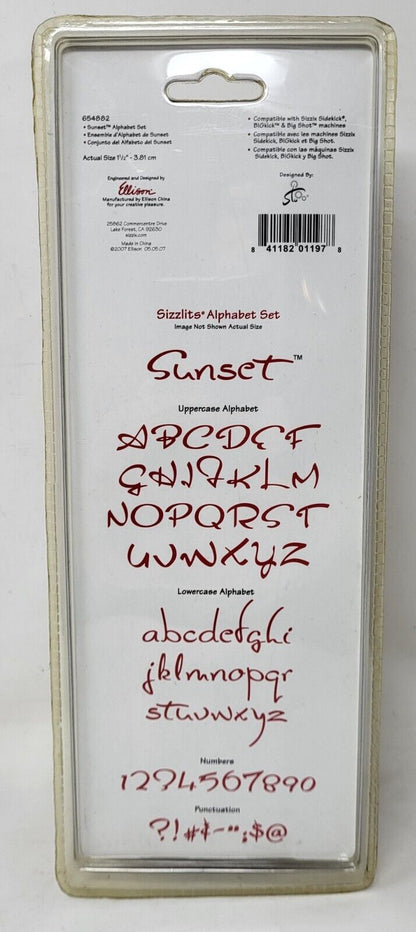 654882
• Sunset™ Alphabet Set
• Ensemble d'Alphabet de Sunset
• Conjunto del Alfabeto del Sunset
Actual Size 1½" - 3.81 cm
• Compatible with Sizzix Sidekick®,
BIGkick™ & Big Shot™ machines
• Compatible avec les machines Sizzix
Sidekick, BIGkick et Big Shot.
• Compatible con las máquinas Sizzix
Sidekick, BIGkick y Big Shot.
Engineered and Designed by
Ellison®
Manufactured by Ellison China
for your creative pleasure.
25862 Commercentre Drive
Lake Forest, CA 92630
sizzix.com
Made in China
©2007 Ellison 05.05.07
Designed By:
8 41182 01197 8
Sizzlits® Alphabet Set
Image Not Shown Actual Size
Sunset™
Uppercase Alphabet
ABCDEF
GHIJKLM
NOPQRST
UVWXYZ
Lowercase Alphabet
abcdefghi
jklmnopqr
stuvwxyz
Numbers
1234567890
Punctuation